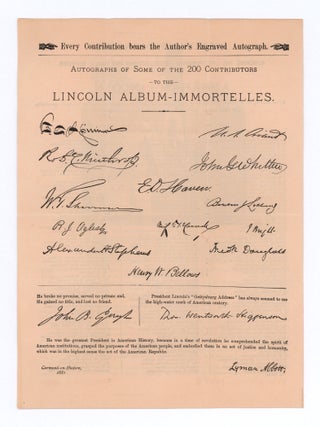 Every Contribution bears the Author's Engraved Autograph.
AUTOGRAPHS OF SOME OF THE 200 CONTRIBUTORS
—TO THE—
LINCOLN ALBUM-IMMORTELLES.
U. S. Grant
Robt. C. Winthrop
John G. Whittier
W. T. Sherman
E. O. Haven
R. J. Oglesby
Alexander H Stephens
Fredk Douglass
Henry W. Bellows
He broke no promise, served no private end,
He gained no title, and lost no friend.
President Lincoln's "Gettysburg Address" has always seemed to me
the high-water mark of American oratory.
John B. Gough
Thos. Wentworth Higginson
He was the greatest President in American History, because in a time of revolution he comprehended the spirit of
American institutions, grasped the purposes of the American people, and embodied them in an act of justice and humanity,
which was in the highest sense the act of the American Republic.
Cornwall-on-Hudson,
1881
Lyman Abbott.